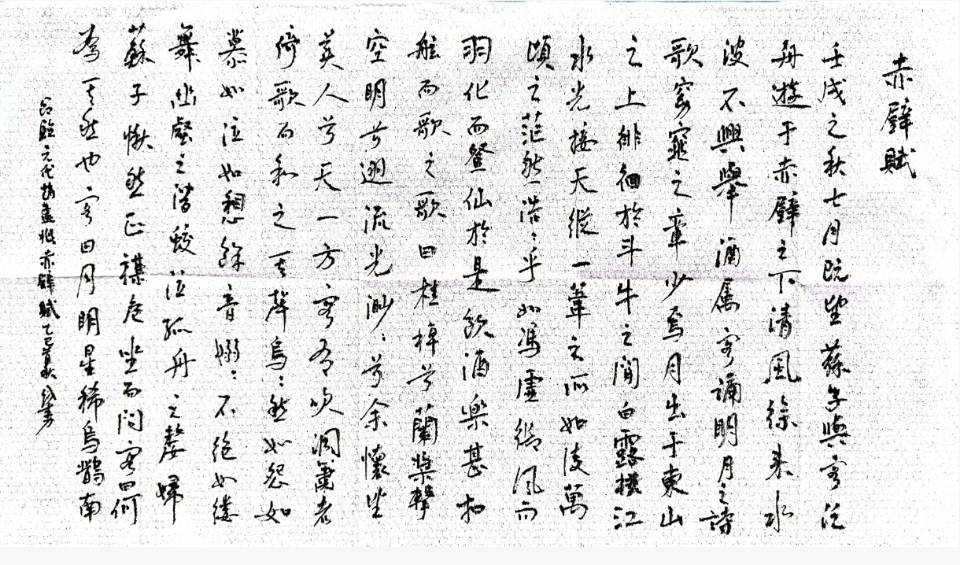 赤壁賦
壬戌之秋七月既望蘇子與客泛
舟遊于赤壁之下清風徐来水
波不興舉酒属客誦明月之詩
歌窈窕之章少焉月出于東山
之上徘徊於斗牛之間白露横江
水光接天縱一葦之所如凌萬
頃之茫然浩〻乎如馮虚御風而
羽化而登仙於是飲酒樂甚扣
舷而歌之歌曰桂棹兮蘭槳擊
空明兮遡流光渺〻兮余懷望
美人兮天一方客有吹洞簫者
倚歌而和之其聲嗚〻然如怨如
慕如泣如愬餘音嫋〻不絶如縷
舞幽壑之潜蛟泣孤舟之嫠婦
蘇子愀然正襟危坐而問客曰何
為其然也客曰月明星稀烏鵲南
臨元代趙孟頫赤壁賦乙巳